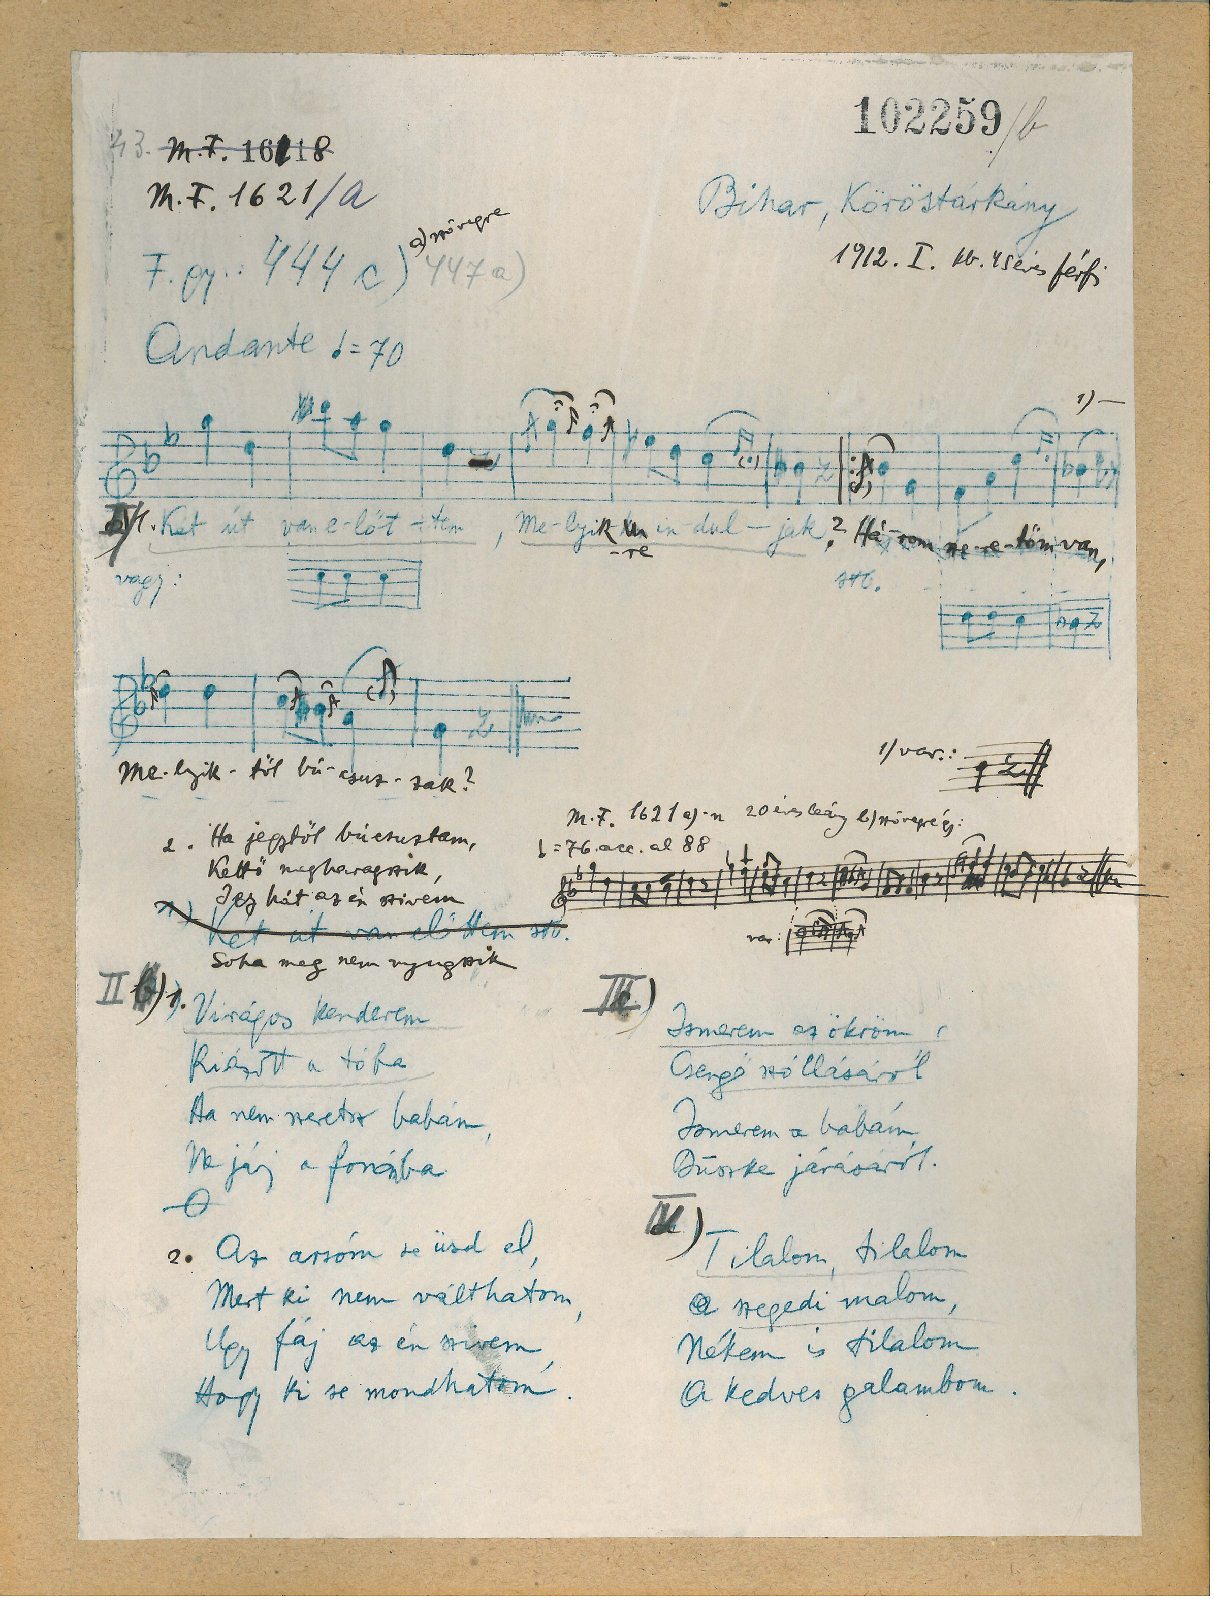 102259/b
43. M.F. 1618
M.F. 1621/a
Bihar, Köröstárkány
F. gy.: 444 c) a) szövegre 447 a)
1912. I. kb. 45 éves férfi
Andante ♩=70
1)
1. Két út van e-lőt-tem, Me-lyik-re in-dul-jak? Há-rom sze-re-tőm van,
vagy:
stb.
Me-lyik-től bú-csuz-zak?
1) var.:
M.F. 1621 a)-n 20 éves leány b) szövegég:
♩=76 acc. al 88
2. Ha jegytől búcsuztam,
Kettő megharagszik,
Igy hát az én szivem
Két út van előttem stb.
Soha meg nem nyugszik
var:
II b) 1. Virágos kenderem
Kiázott a tóba
Ha nem szeretsz babám,
Ne járj a fonóba
2. Az arsóm se üsd el,
Mert ki nem válthatom,
Ugy fáj az én szivem,
Hogy ki se mondhatom.
III)
Ismerem az ökröm
Csengő szóllásáról
Ismerem a babám
Büszke járásáról.
IV)
Tilalom, tilalom
a szegedi malom,
Nékem is tilalom
A kedves galambom.